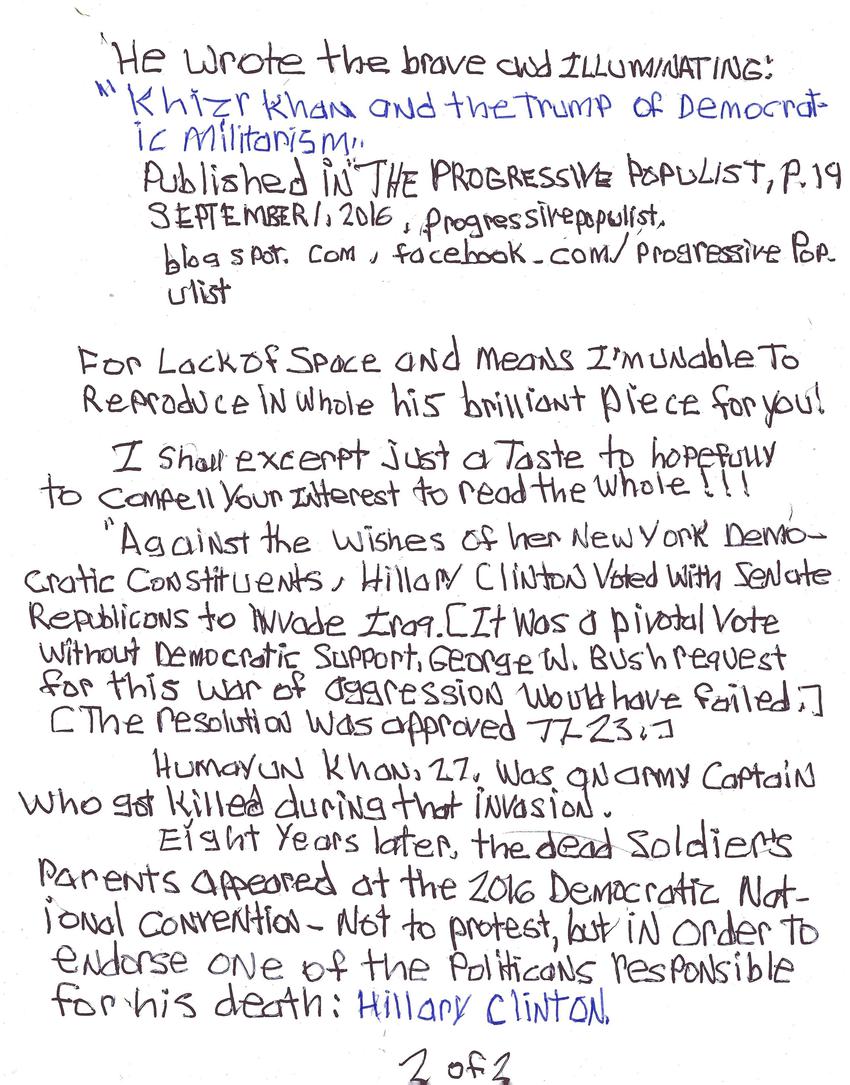 "He Wrote the brave and ILLUMINATING:
"Khizr Khan and the Trump of Democrat-
ic Militarism"
Published IN "THE PROGRESSIVE POPULIST, P. 19
SEPTEMBER 1, 2016, Progressivepopulist.
blogspot. com, facebook.com/Progressive Pop-
ulist
For Lack of Space and means I'm unable To
Reproduce in whole his brilliant piece for you!
I shall excerpt just a Taste to hopefully
to compell your interest to read the whole!!!
"Against the wishes of her New York Demo-
cratic Constituents, Hillary Clinton Voted With Senate
Republicans to invade Iraq. [It was a pivotal vote
without Democratic Support, George W. Bush request
for this war of aggression would have failed.]
[The resolution was approved 77-23.]
Humayun Khan, 27, was an army Captain
who got killed during that invasion.
Eight Years later, the dead Soldier's
Parents appeared at the 2016 Democratic Nat-
ional Convention - Not to protest, but in order to
endorse one of the Politicans responsible
for his death: Hillary Clinton.
2 of 2